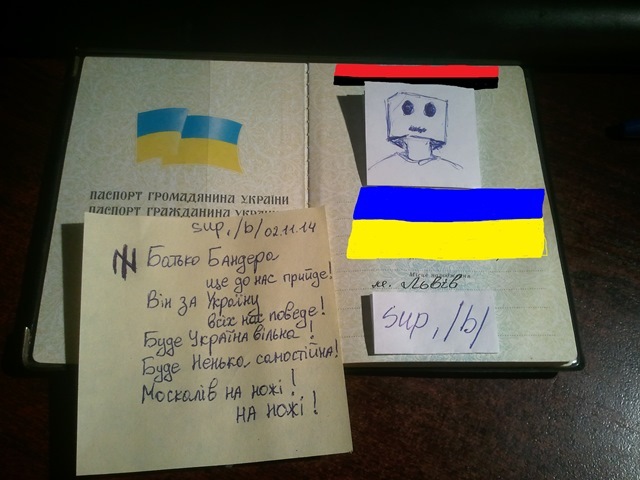 ПАСПОРТ ГРОМАДЯНИНА УКРАЇНИ
ПАСПОРТ ГРАЖДАНИНА УКРАИНЫ
sup, /b/ 02.11.14
Батько Бандера
ще до нас прийде!
Він за Україну
всіх нас поведе!
Буде Україна вільна!
Буде Ненька самостійна!
Москалів на ножі!
на ножі!
Місце народження
м. Львів
sup, /b/